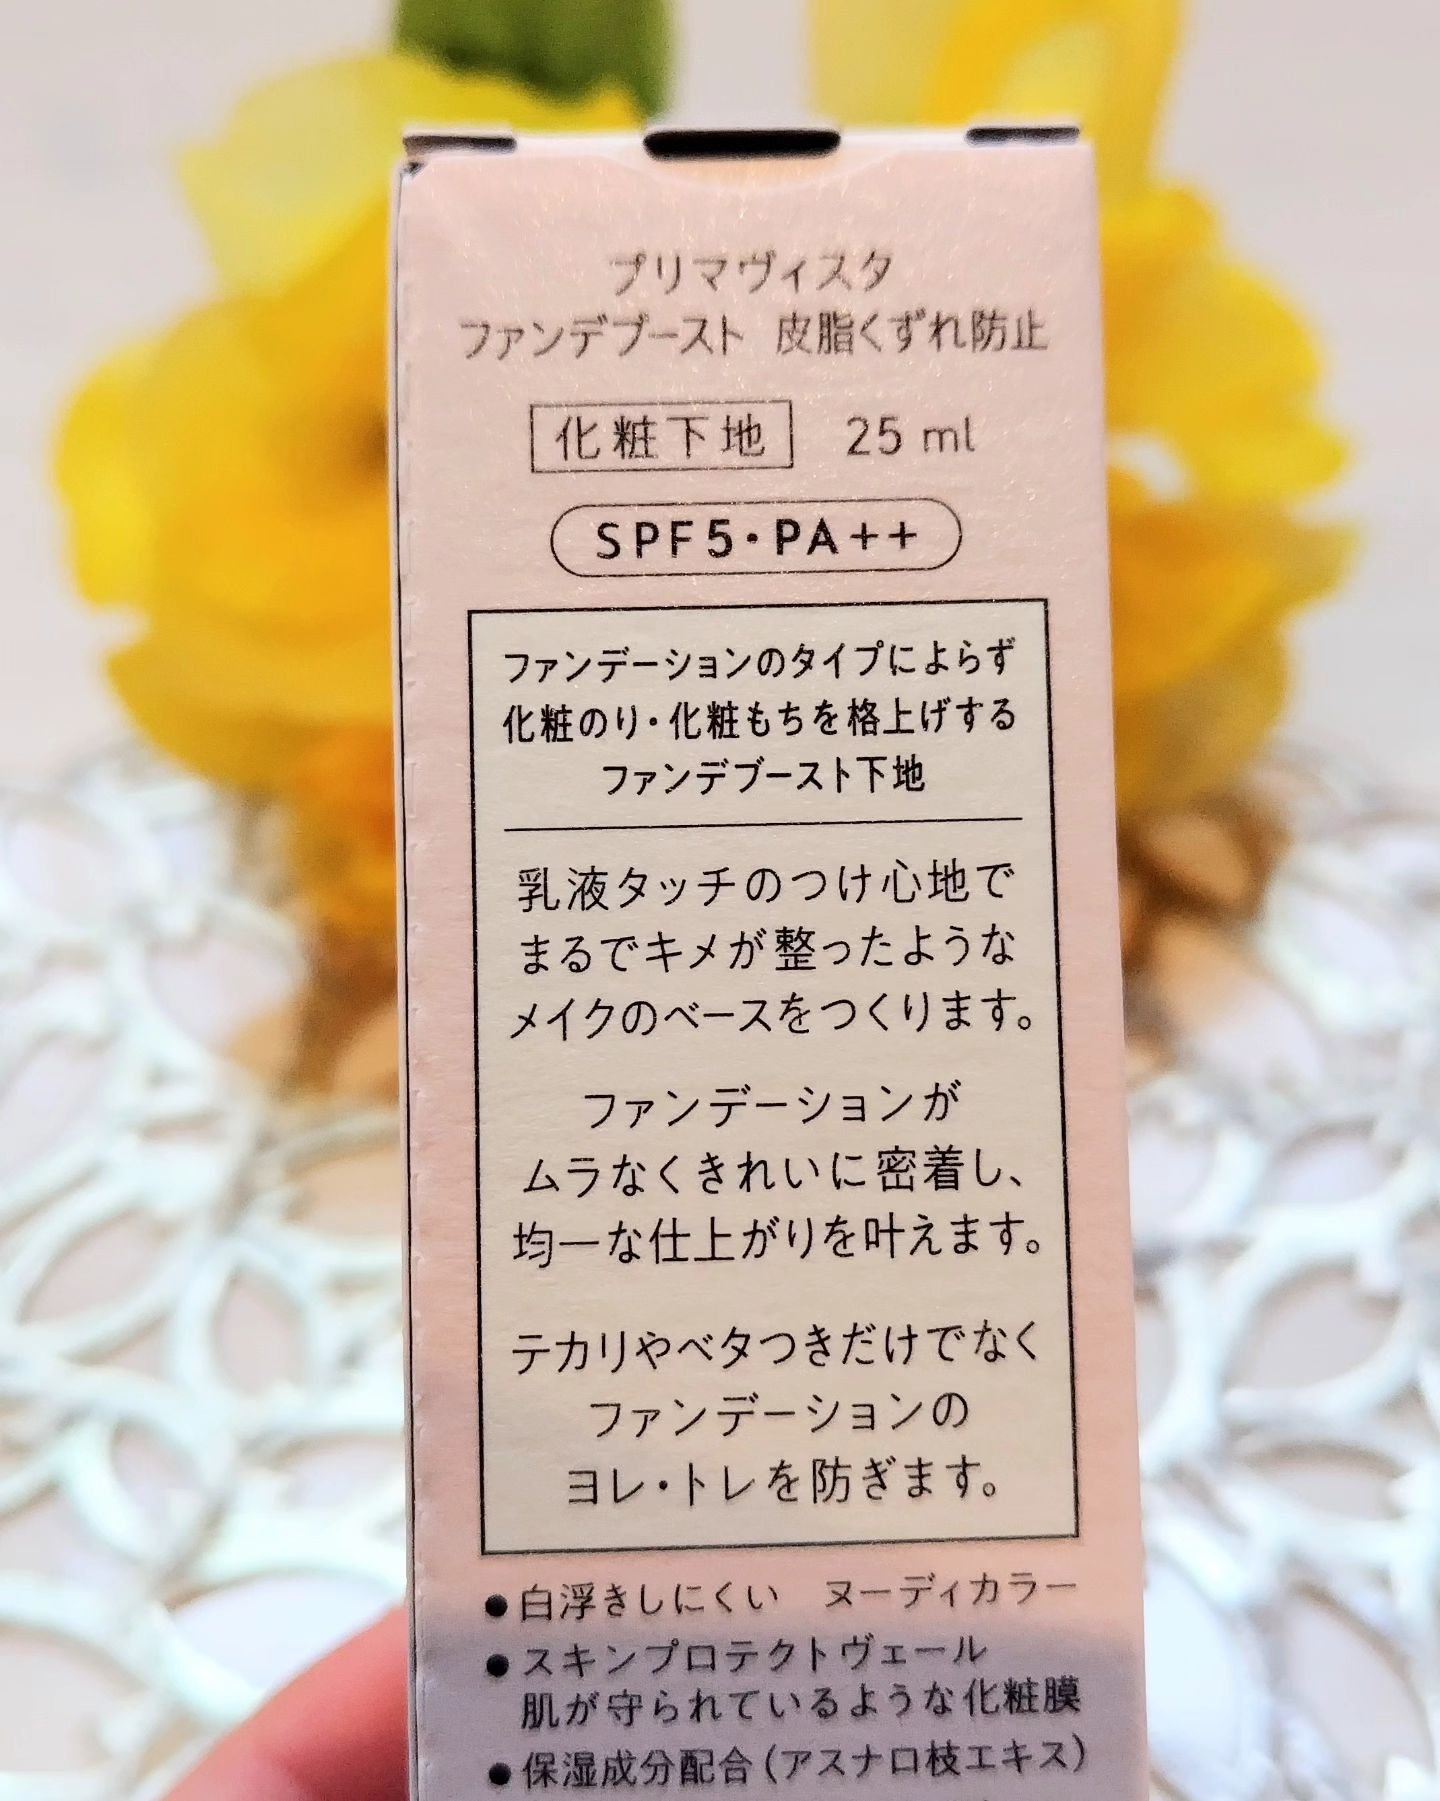 プリマヴィスタ
ファンデブースト 皮脂くずれ防止
化粧下地 25 ml
SPF5・PA++
ファンデーションのタイプによらず
化粧のり・化粧もちを格上げする
ファンデブースト下地
乳液タッチのつけ心地で
まるでキメが整ったような
メイクのベースをつくります。
ファンデーションが
ムラなくきれいに密着し、
均一な仕上がりを叶えます。
テカリやベタつきだけでなく
ファンデーションの
ヨレ・トレを防ぎます。
●白浮きしにくい ヌーディカラー
●スキンプロテクトヴェール
肌が守られているような化粧膜
●保湿成分配合(アスナロ枝エキス)